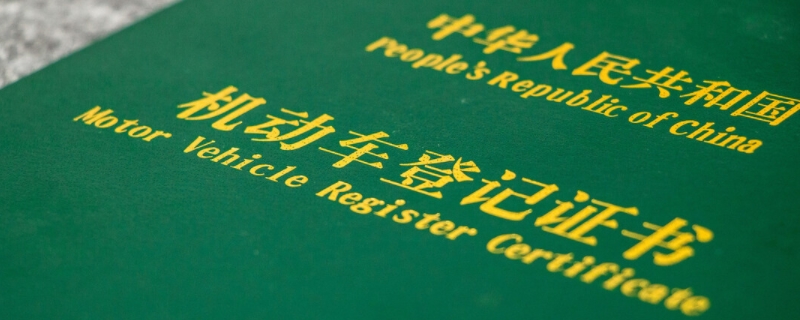 中华人民共和国
People's Republic of China
机动车登记证书
Motor Vehicle Register Certificate